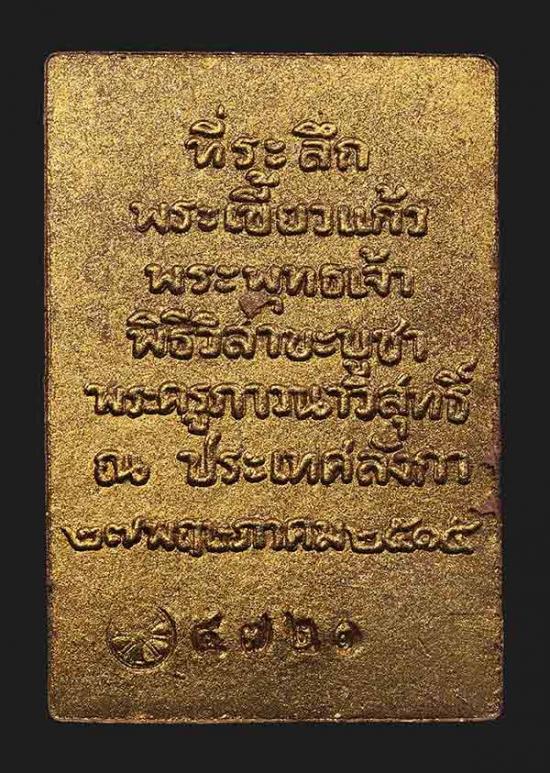 ที่ระลึก
พระเขี้ยวแก้ว
พระพุทธเจ้า
พิธีวิสาขะบูชา
พระครูภาวนาวิสุทธิ์
ณ ประเทศลังกา
๒๗พฤษภาคม๒๕๑๕
๔๗๒๑